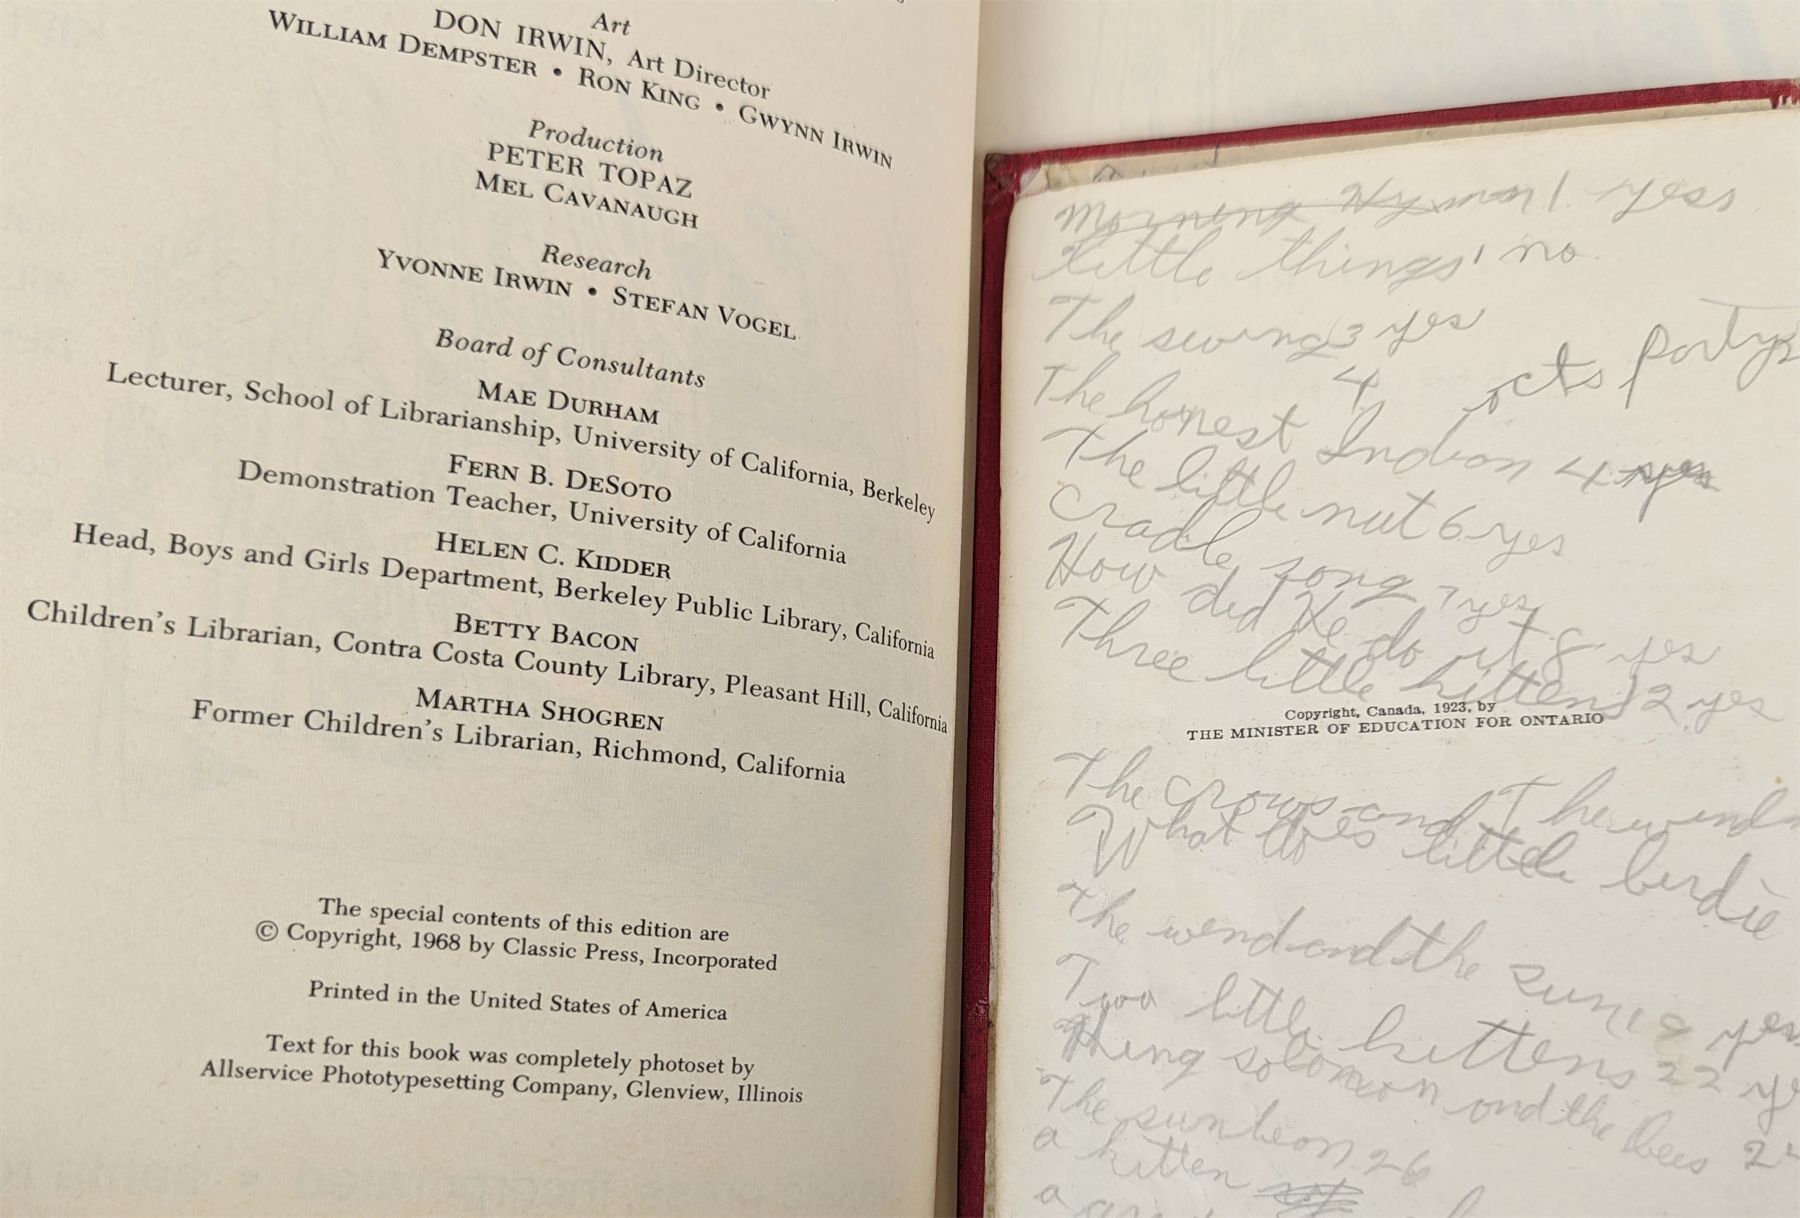 Art
DON IRWIN, Art Director
WILLIAM DEMPSTER • RON KING • GWYNN IRWIN
Production
PETER TOPAZ
MEL CAVANAUGH
Research
YVONNE IRWIN • STEFAN VOGEL
Board of Consultants
MAE DURHAM
Lecturer, School of Librarianship, University of California, Berkeley
FERN B. DESOTO
Demonstration Teacher, University of California
HELEN C. KIDDER
Head, Boys and Girls Department, Berkeley Public Library, California
BETTY BACON
Children's Librarian, Contra Costa County Library, Pleasant Hill, California
MARTHA SHOGREN
Former Children's Librarian, Richmond, California
The special contents of this edition are
© Copyright, 1968 by Classic Press, Incorporated
Printed in the United States of America
Text for this book was completely photoset by
Allservice Phototypesetting Company, Glenview, Illinois
Morning Hymn 1 yess
little things 1 no
The swing 3 yes
4 party
The honest Indian 4 yes
The little nut 6 yes
Cradle song 7 yes
How did He do it 8 yes
Three little kittens 12 yes
Copyright, Canada, 1923, by
THE MINISTER OF EDUCATION FOR ONTARIO
The crows and The
What does little birdie
The wend and the sun 18 yes
Two little kittens 22
King solomon and the bees
The sunbeam 26
a kitten
a